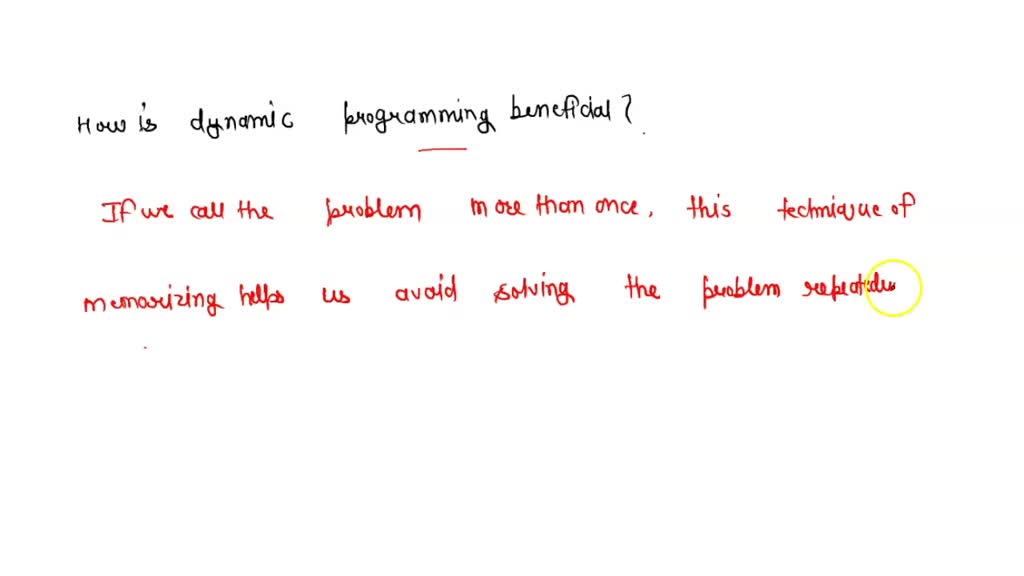 How is dynamic programming beneficial?
If we call the problem more than once, this technique of
memorizing helps us avoid solving the problem repeatedly